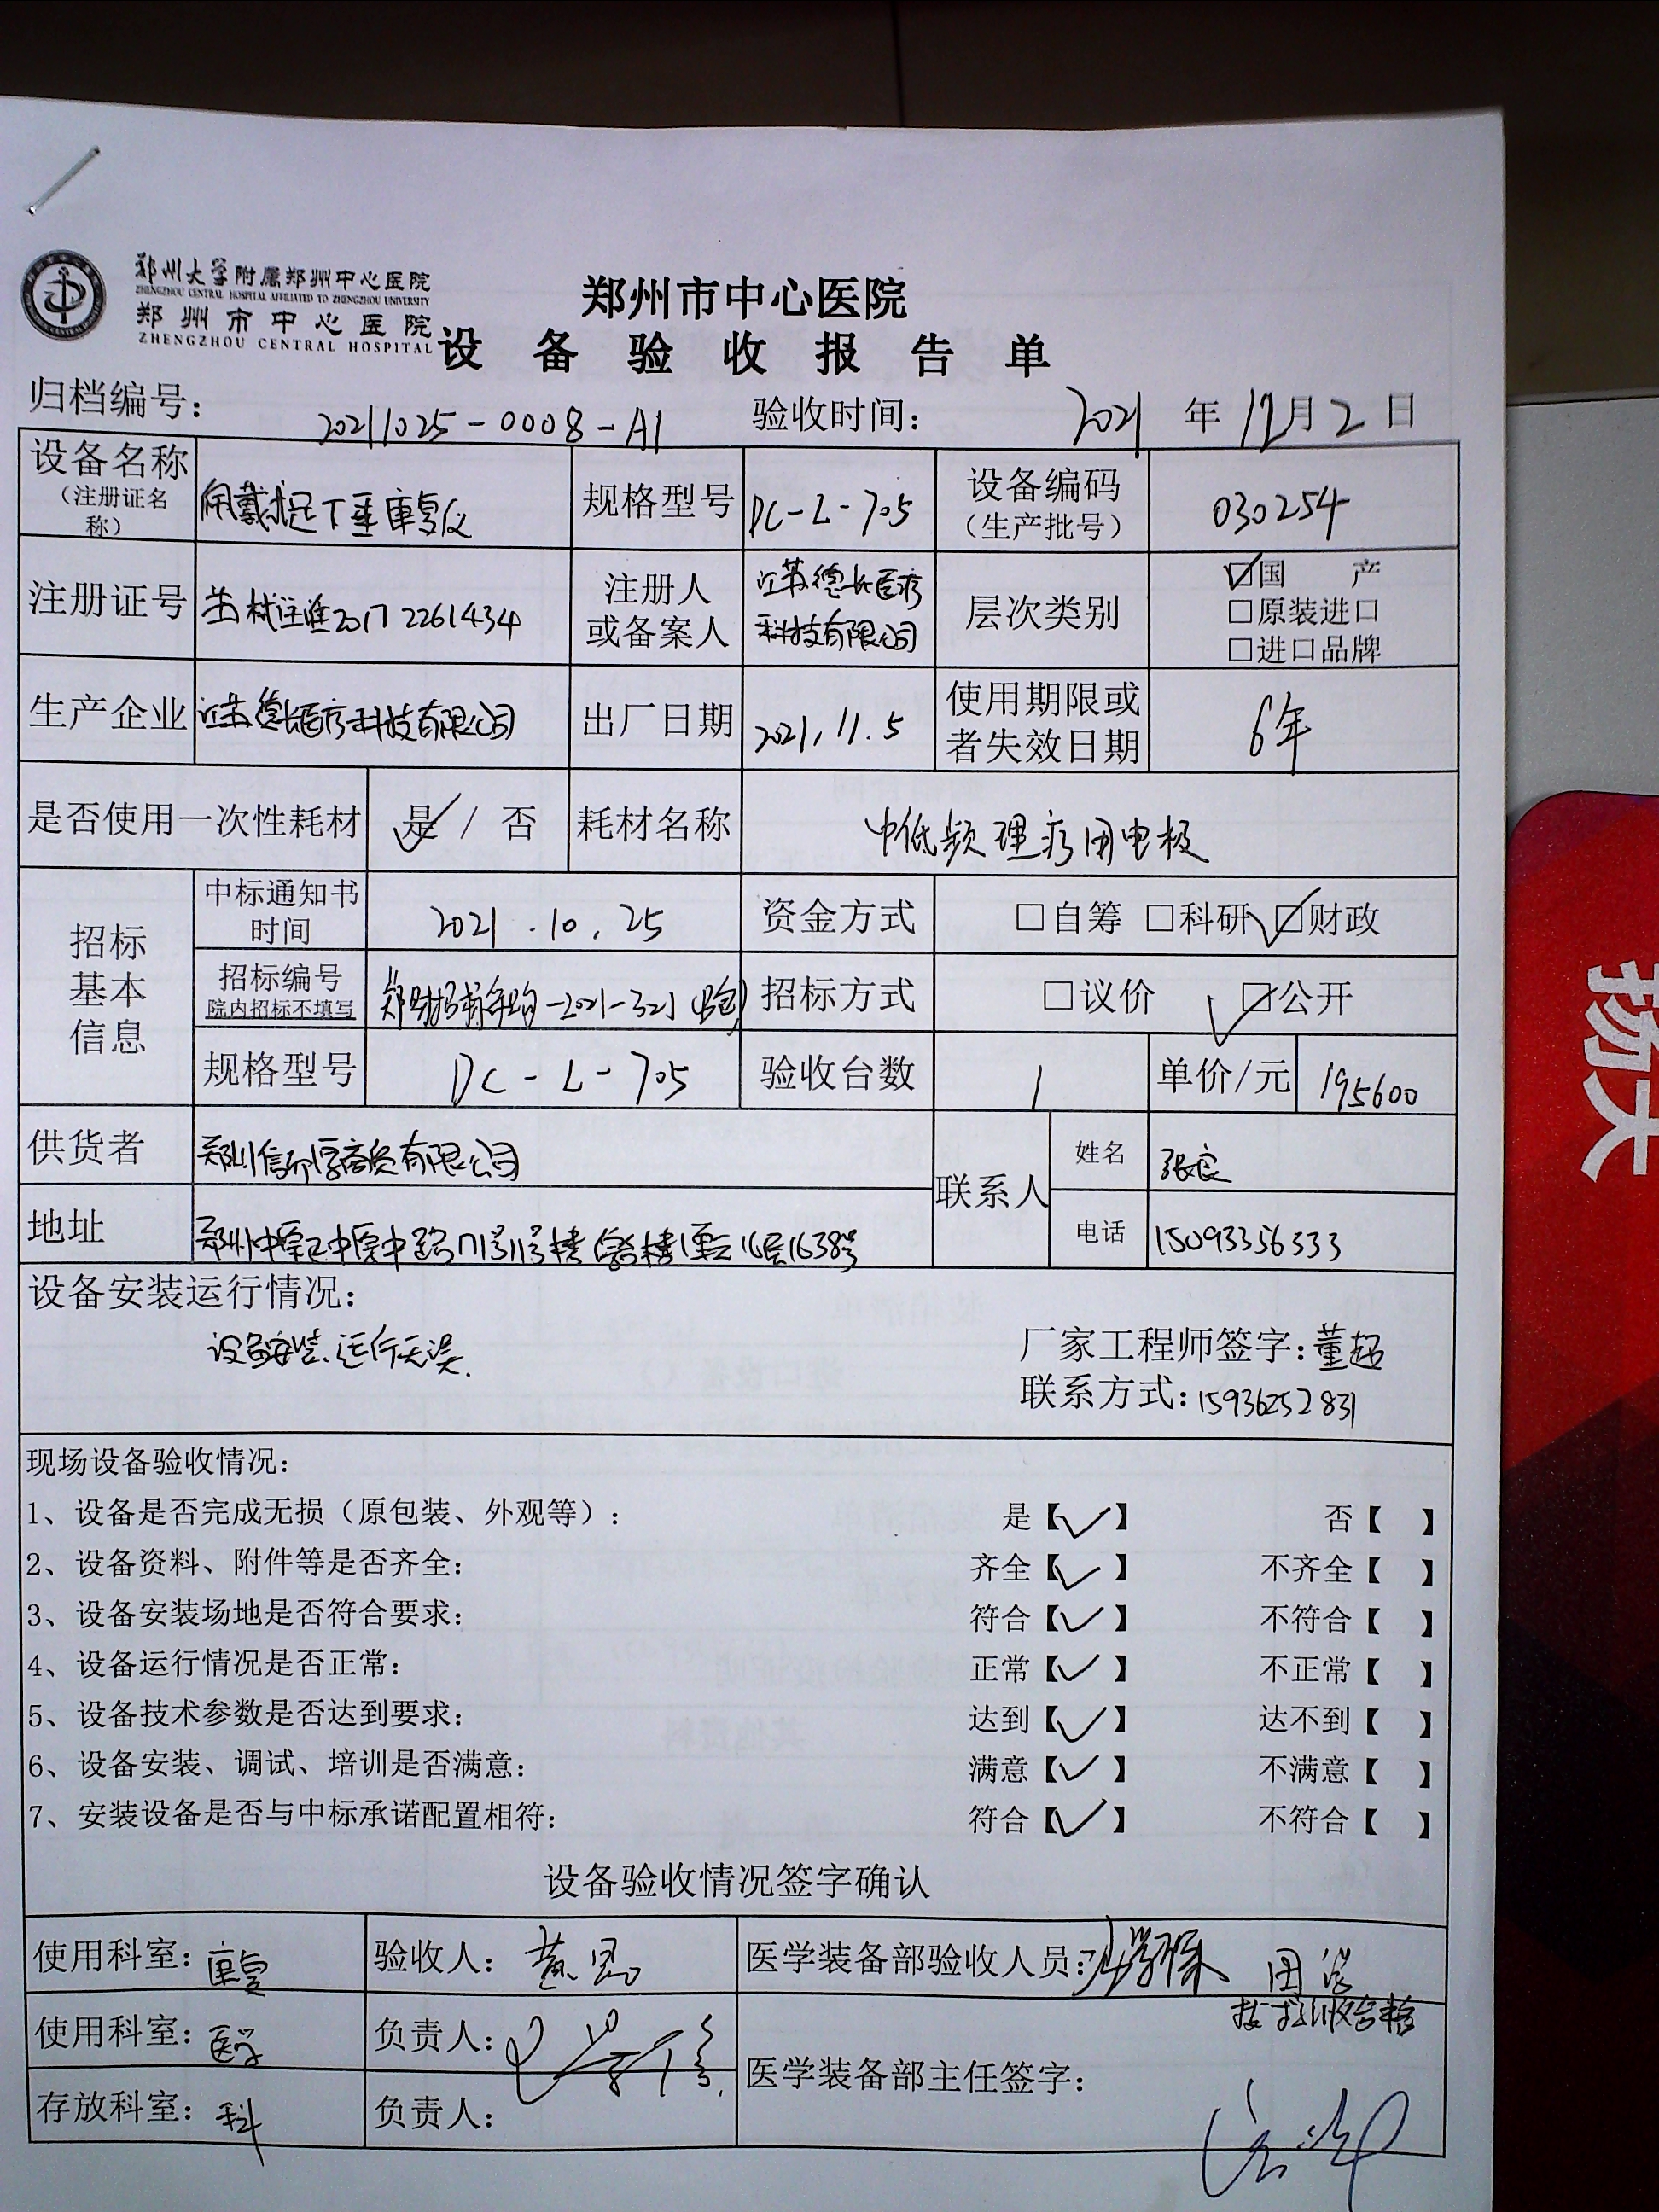 郑州大学附属郑州中心医院
ZHENGZHOU CENTRAL HOSPITAL AFFILIATED TO ZHENGZHOU UNIVERSITY
郑州市中心医院
ZHENGZHOU CENTRAL HOSPITAL
郑州市中心医院
设备验收报告单
归档编号： 20211025-0008-A1 验收时间： 2021 年 12 月 2 日
设备名称（注册证名称） 佩戴式足下垂康复仪 规格型号 DC-L-705 设备编码（生产批号） 030254
注册证号 苏械注准2017 2261434 注册人或备案人 江苏德长医疗科技有限公司 层次类别 ☑国 产
□原装进口
□进口品牌
生产企业 江苏德长医疗科技有限公司 出厂日期 2021.11.5 使用期限或者失效日期 6年
是否使用一次性耗材 是✓ / 否 耗材名称 中低频理疗用电极
招标基本信息
中标通知书时间 2021.10.25 资金方式 □自筹 □科研 ☑财政
招标编号 院内招标不填写 郑财招标采购-2021-321 招标方式 □议价 ☑公开
规格型号 DC-L-705 验收台数 1 单价/元 195600
供货者 郑州信尔厚商贸有限公司 联系人 姓名 张良
地址 郑州中原区中原中路171号1号楼 16层1638号 电话 15093356333
设备安装运行情况：
设备安装、运行无误.
厂家工程师签字：董超
联系方式：15936252831
现场设备验收情况：
1、设备是否完成无损（原包装、外观等）： 是【✓】 否【 】
2、设备资料、附件等是否齐全： 齐全【✓】 不齐全【 】
3、设备安装场地是否符合要求： 符合【✓】 不符合【 】
4、设备运行情况是否正常： 正常【✓】 不正常【 】
5、设备技术参数是否达到要求： 达到【✓】 达不到【 】
6、设备安装、调试、培训是否满意： 满意【✓】 不满意【 】
7、安装设备是否与中标承诺配置相符： 符合【✓】 不符合【 】
设备验收情况签字确认
使用科室：康复 验收人： 医学装备部验收人员：
使用科室：医学 负责人：
技术验收合格
医学装备部主任签字：
存放科室：科 负责人：
扬天